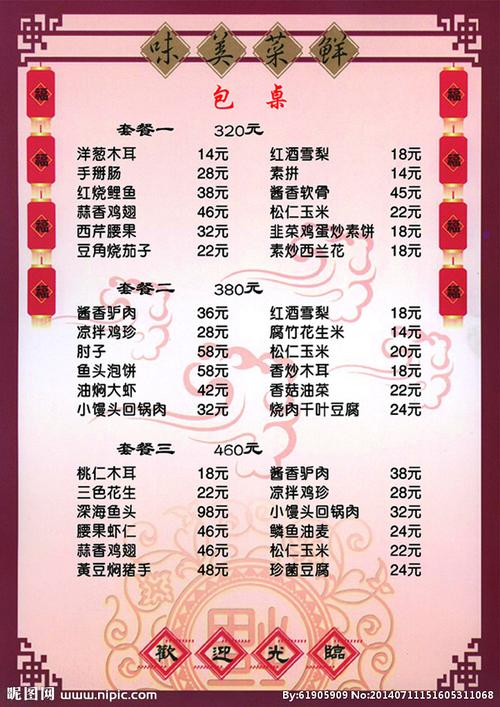 味美菜鲜
包桌
套餐一 320元
洋葱木耳 14元 红酒雪梨 18元
手掰肠 28元 素拼 14元
红烧鲤鱼 38元 酱香软骨 45元
蒜香鸡翅 46元 松仁玉米 22元
西芹腰果 32元 韭菜鸡蛋炒素饼 18元
豆角烧茄子 22元 素炒西兰花 18元
套餐二 380元
酱香驴肉 36元 红酒雪梨 18元
凉拌鸡珍 28元 腐竹花生米 14元
肘子 58元 松仁玉米 20元
鱼头泡饼 58元 香炒木耳 18元
油焖大虾 42元 香菇油菜 22元
小馒头回锅肉 32元 烧肉千叶豆腐 24元
套餐三 460元
桃仁木耳 18元 酱香驴肉 38元
三色花生 22元 凉拌鸡珍 28元
深海鱼头 98元 小馒头回锅肉 32元
腰果虾仁 48元 鳞鱼油麦 24元
蒜香鸡翅 46元 松仁玉米 22元
黃豆焖猪手 48元 珍菌豆腐 24元
歡迎光臨
福
福
福
福
福
福
福
福
昵图网 www.nipic.com
By:61905909 No:20140711151605311068